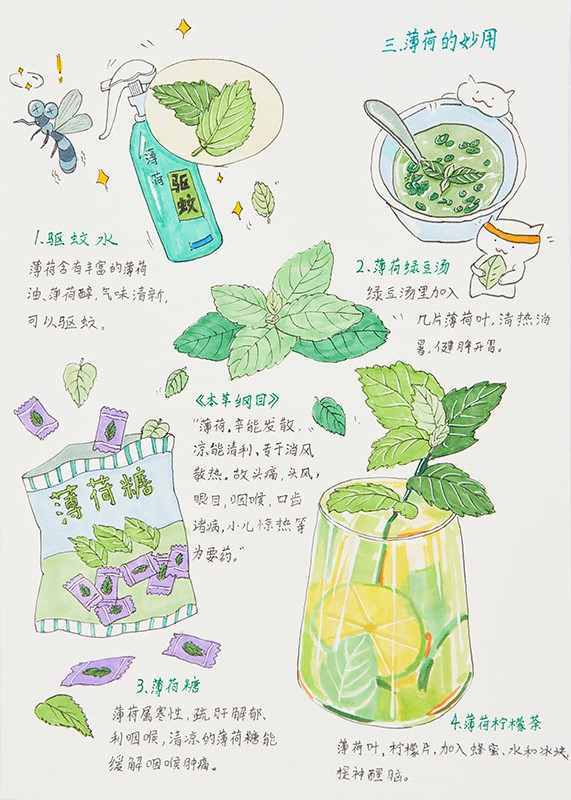 三.薄荷的妙用
薄荷
驱蚊
1.驱蚊水
薄荷含有丰富的薄荷
油、薄荷醇,气味清新,
可以驱蚊。
2.薄荷绿豆汤
绿豆汤里加入
几片薄荷叶,清热消
暑,健脾开胃。
《本草纲目》
“薄荷,辛能发散,
凉能清利,专于消风
散热。故头痛,头风,
眼目,咽喉,口齿
诸病,小儿惊热等
为要药。”
薄荷糖
3.薄荷糖
薄荷属寒性,疏肝解郁、
利咽喉,清凉的薄荷糖能
缓解咽喉肿痛。
4.薄荷柠檬茶
薄荷叶,柠檬片,加入蜂蜜、水和冰块
提神醒脑。